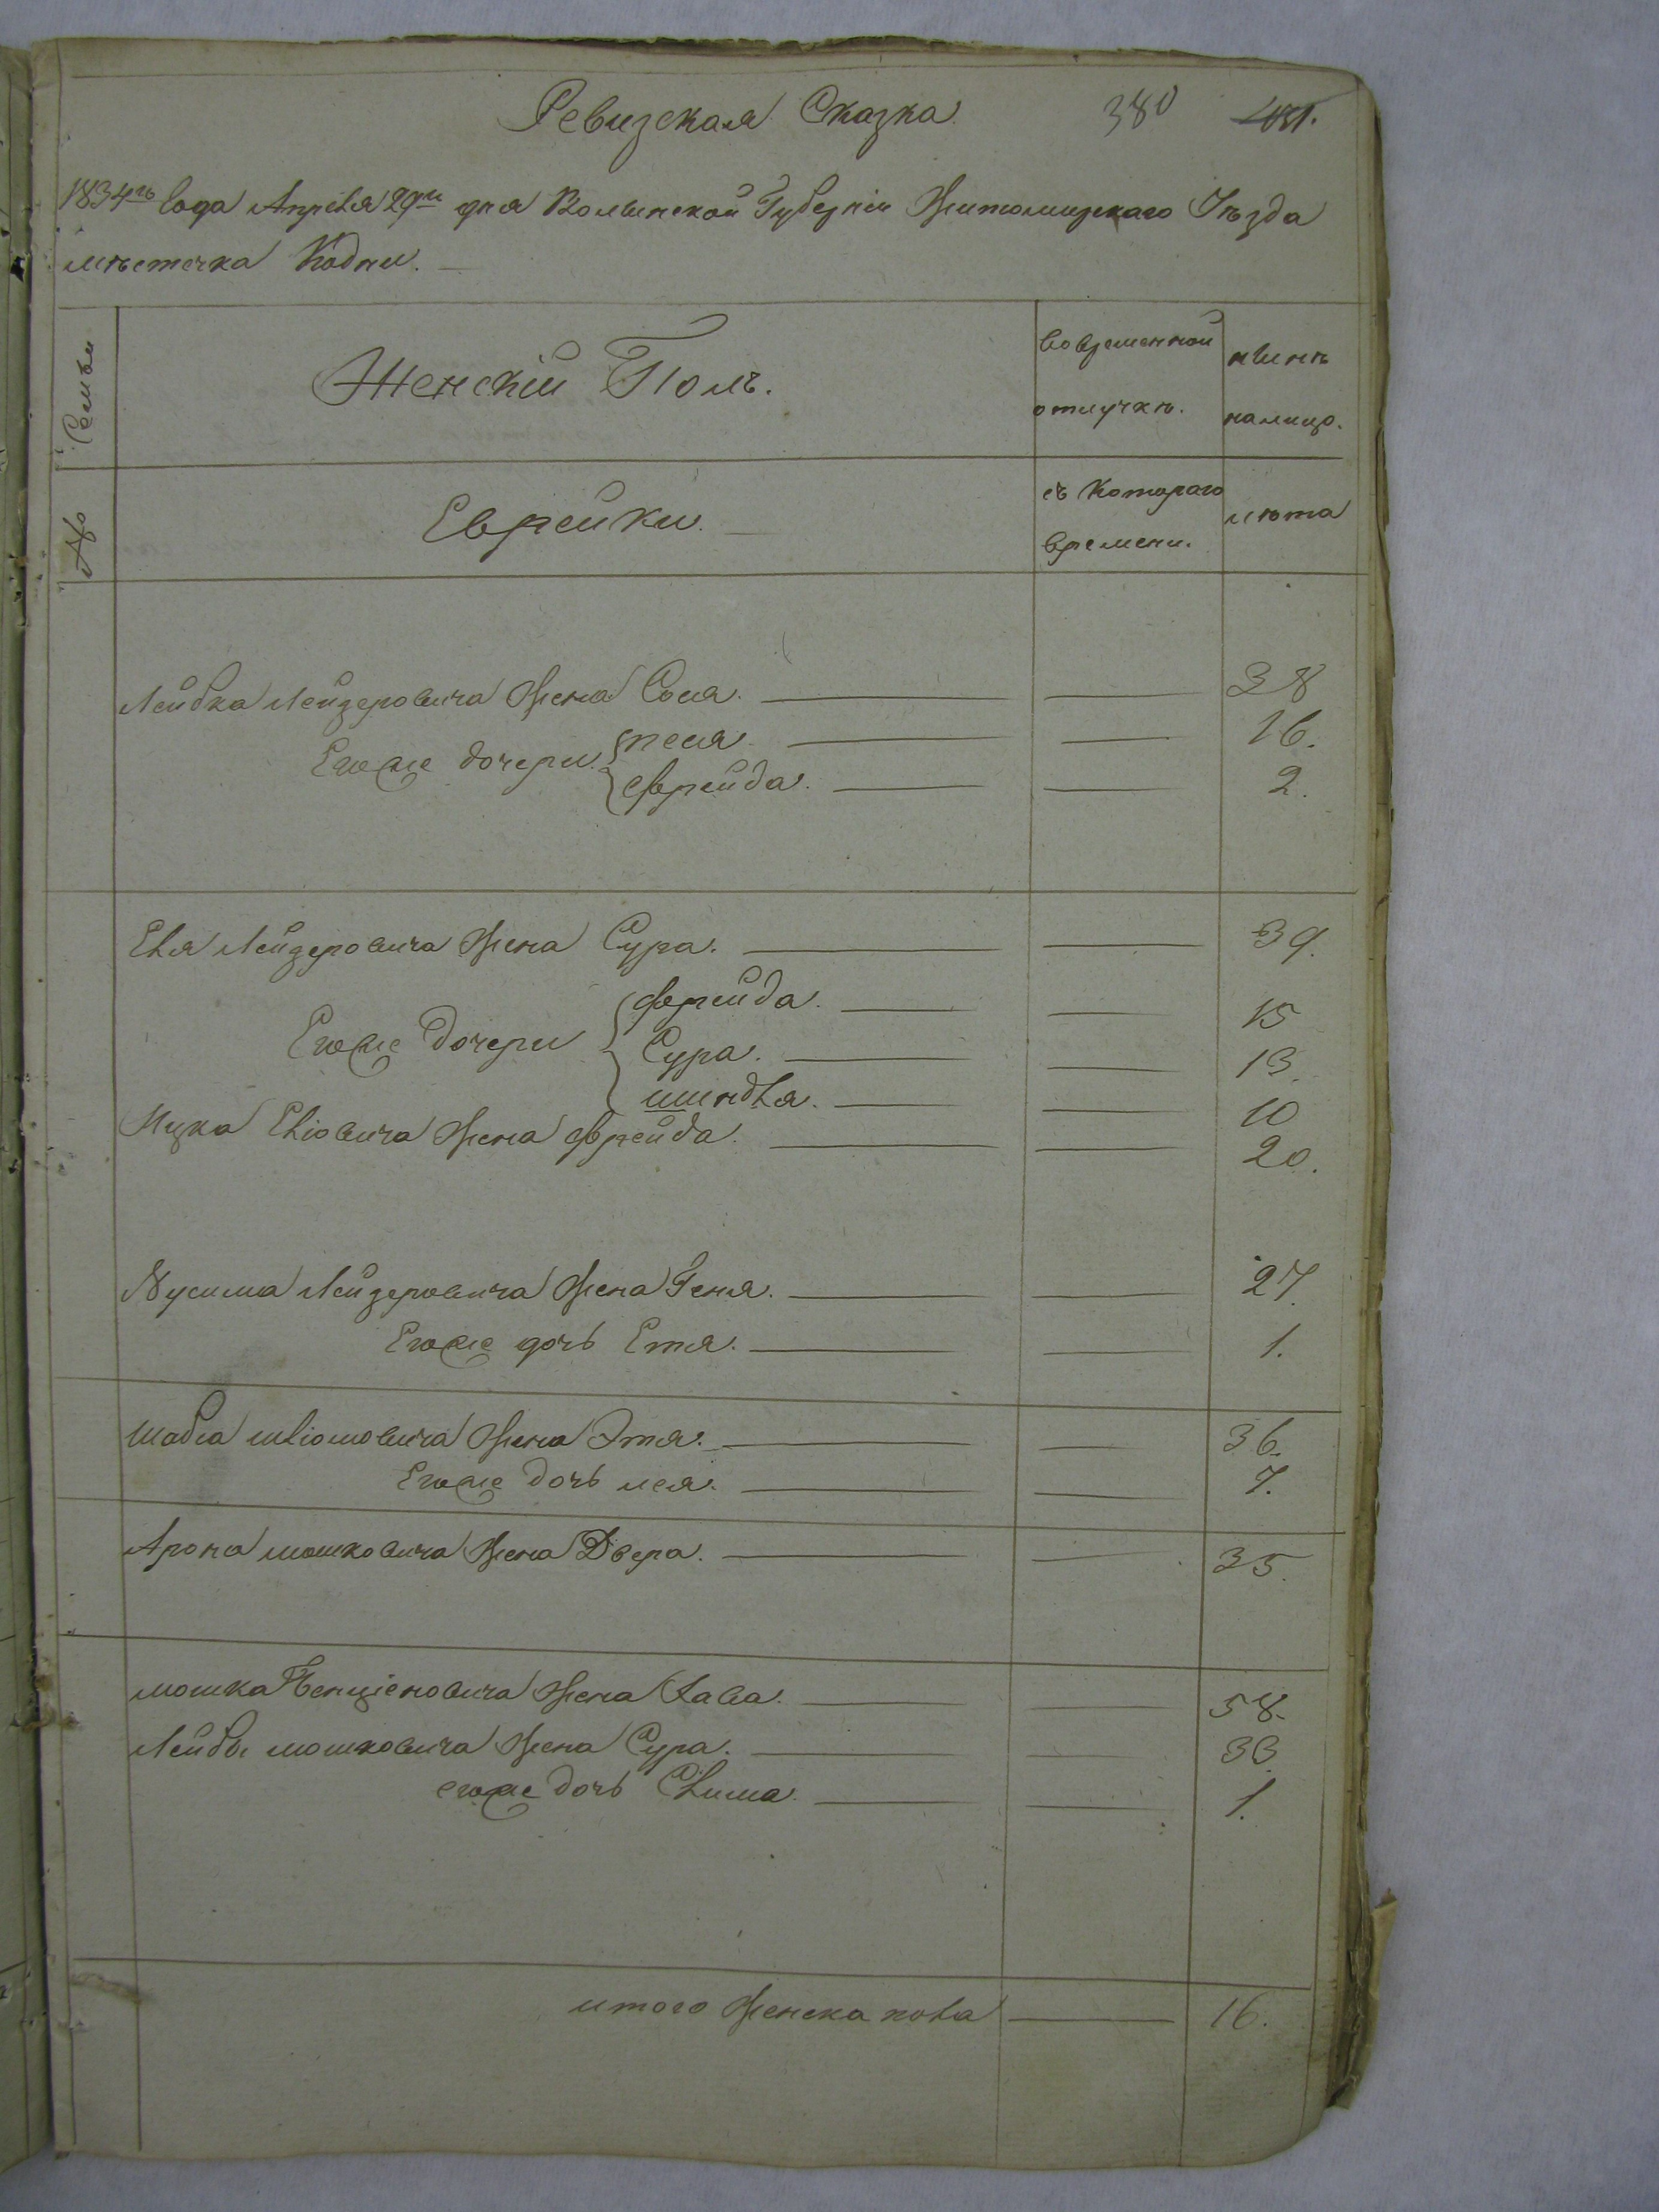 Ревизская Сказка. 380
1834го Года Апреля 29го дня Волынской Губерніи Житомирскаго Уѣзда
мѣстечка Кодни.
№ Семьи
Женскій Полъ.
во временной отлучкѣ.
нынѣ налицо.
Еврейки.
съ Котораго времени.
лѣта
Лейбка Лейзеровича Жена Сося. 38
Егоже дочери песя. 16.
фрейда. 2.
Еля Лейзеровича Жена Сура. 39.
фрейда. 15
Егоже дочери Сура. 13.
шиндля. 10
Ицка Еліовича Жена фрейда. 20.
Нусима Лейзеровича Жена Геня. 27.
Егоже дочь Етя. 1.
шліомовича Жена Этя. 36.
Егоже дочь лея. 7.
Арона мошковича Жена Двера. 35.
мошка Бенціоновича Жена Хава. 58.
Лейбы мошковича Жена Сура. 33.
егоже дочь Слима. 1.
итого Женска пола 16.